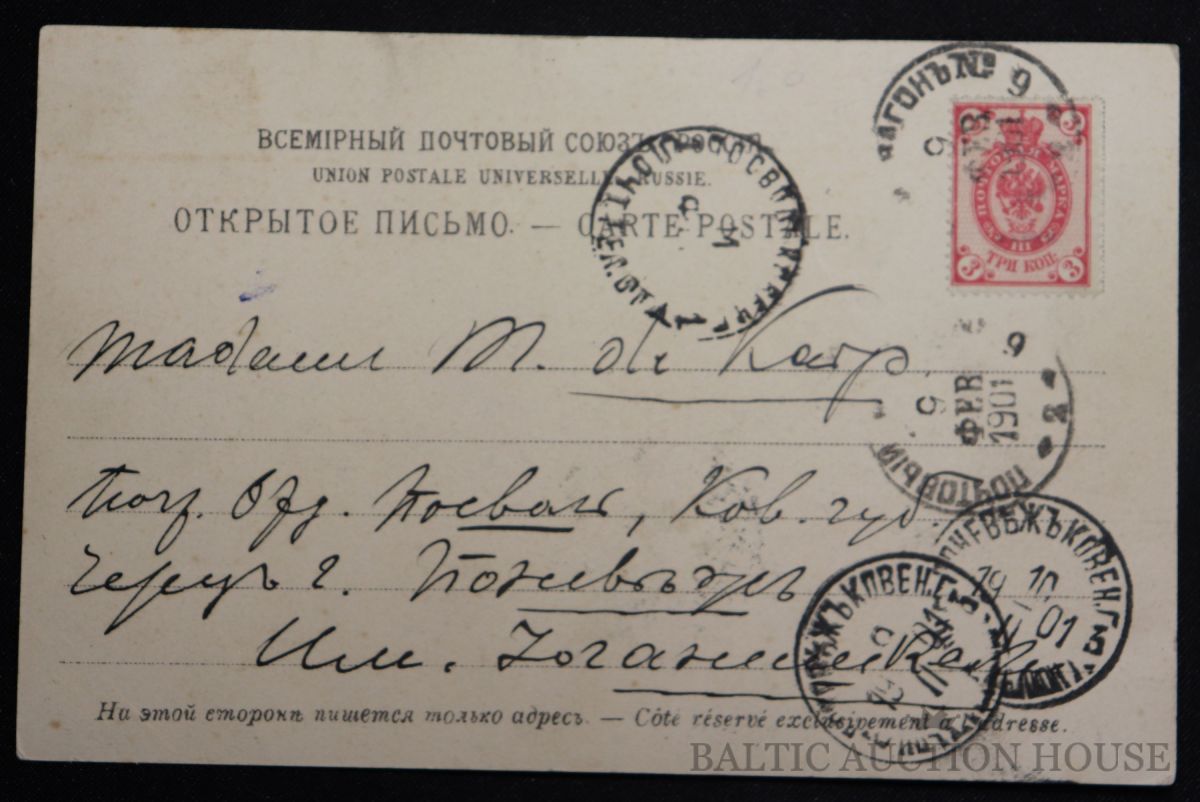 ВСЕМІРНЫЙ ПОЧТОВЫЙ СОЮЗЪ.
UNION POSTALE UNIVERSELLE. RUSSIE.
ОТКРЫТОЕ ПИСЬМО. — CARTE POSTALE.
ВАГОНЪ № 9
9
3 3
3 ТРИ КОП. 3
ПОЧТ
1
Madame M. de Karp.
9 9
ФЕВ
1901
2
ПОЧТОВЫЙ
Почт. Отд. Посволь, Ков. губ.
Черезъ г. Поневѣжъ
Им. Іоганишкели
ПОНЕВѢЖЪ КОВЕН. Г.
19 10 II 01
ПОНЕВѢЖЪ КОВЕН. Г.
На этой сторонѣ пишется только адресъ. — Côté réservé exclusivement à l'adresse.
BALTIC AUCTION HOUSE